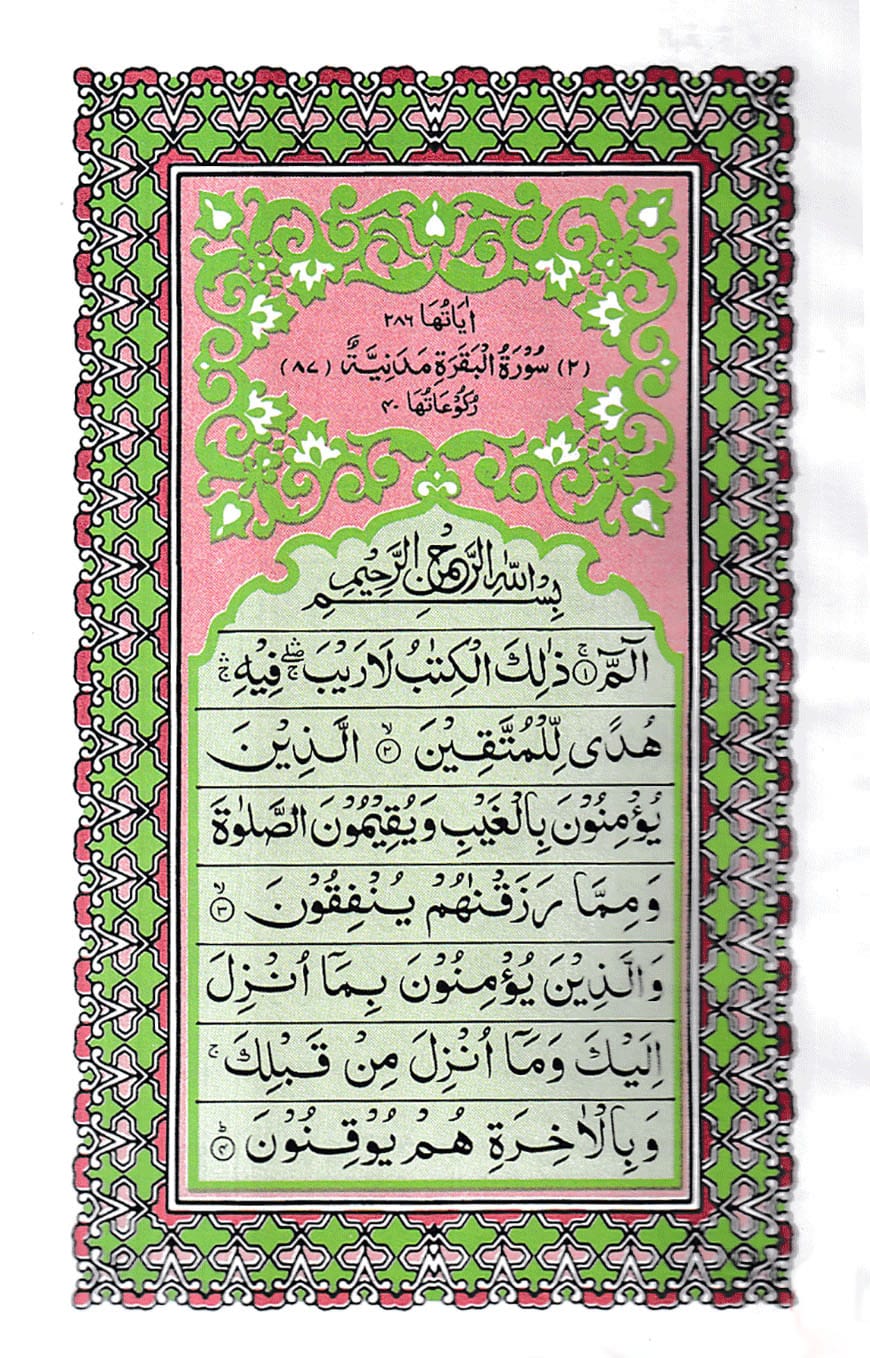 اٰيَاتُهَا ٢٨٦
(٢) سُوْرَةُ الْبَقَرَةِ مَدَنِيَّةٌ (٨٧)
رُكُوْعَاتُهَا ۴٠
بِسْمِ اللّٰهِ الرَّحْمٰنِ الرَّحِيْمِ
الٓمّٓ ۚ‏﴿١﴾ ذٰلِكَ الْكِتٰبُ لَا رَيْبَ ۖۚ فِيْهِ ۛۚ
هُدًى لِّلْمُتَّقِيْنَ ۙ‏﴿٢﴾ الَّذِيْنَ
يُؤْمِنُوْنَ بِالْغَيْبِ وَيُقِيْمُوْنَ الصَّلٰوةَ
وَمِمَّا رَزَقْنٰهُمْ يُنْفِقُوْنَ ۙ‏﴿٣﴾
وَالَّذِيْنَ يُؤْمِنُوْنَ بِمَآ اُنْزِلَ
اِلَيْكَ وَمَآ اُنْزِلَ مِنْ قَبْلِكَ ۚ
وَبِالْاٰخِرَةِ هُمْ يُوْقِنُوْنَ ؕ‏﴿۴﴾